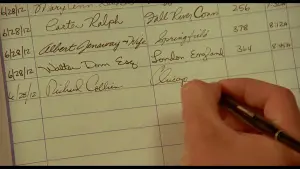 6/28/12 Mary Ann
6/28/12 Carter Ralph Fall River Conn 256
6/28/12 Albert Janaway - Wife Springfield 378 8:12A
6/28/12 Walter Dunn Esq London England 364
6/28/12 Richard Collier Chicago